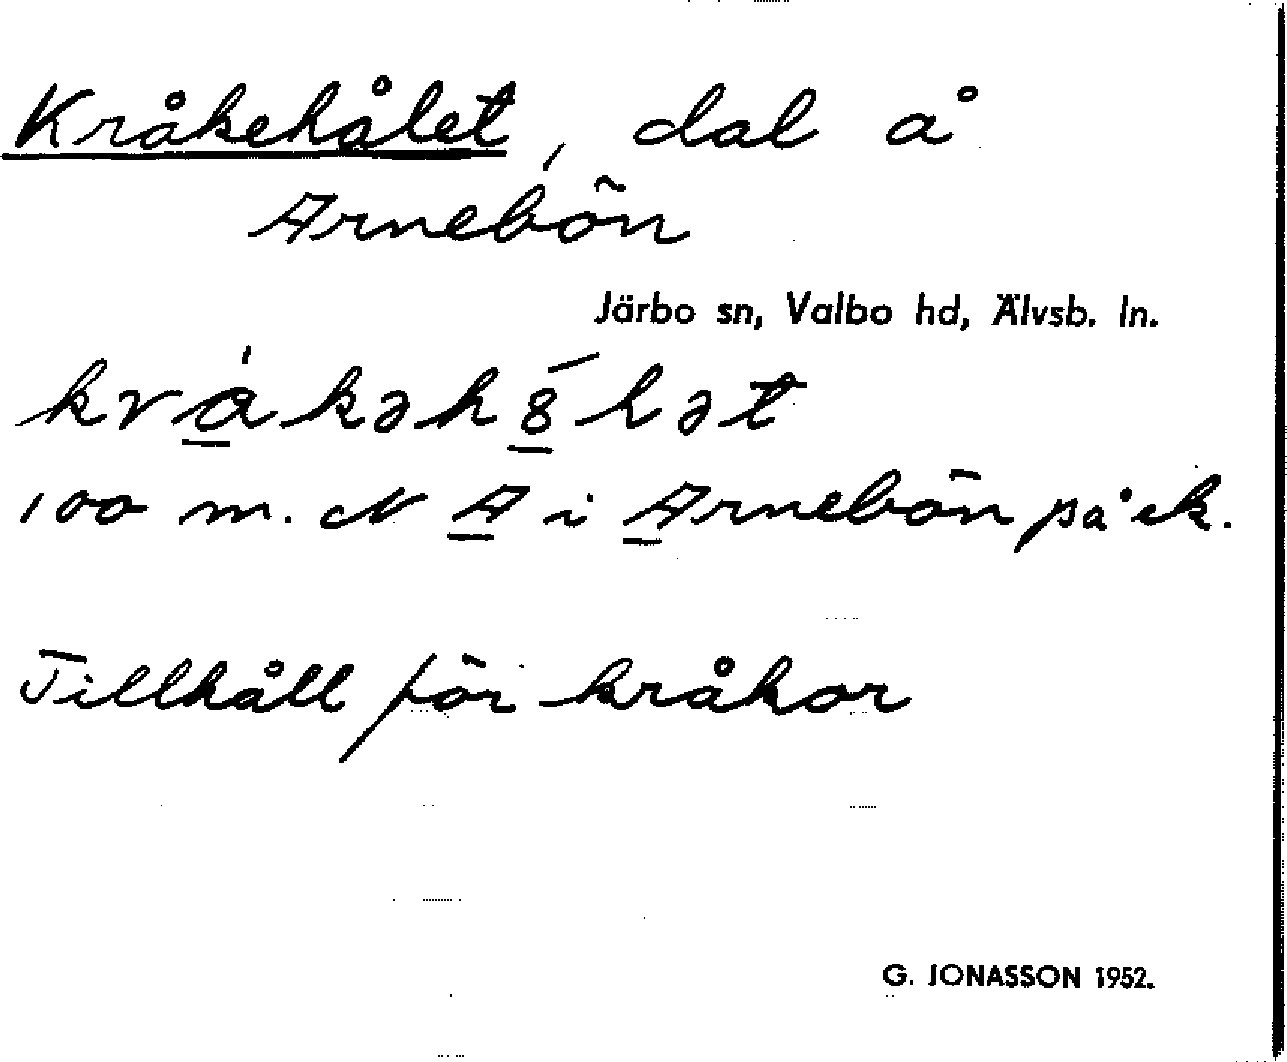 Kråkehålet, dal å
Arnebön
Järbo sn, Valbo hd, Älvsb. ln.
krákəh8́lət
100 m. N A i Arnebön på ek.
Tillhåll för kråkor
G. JONASSON 1952.